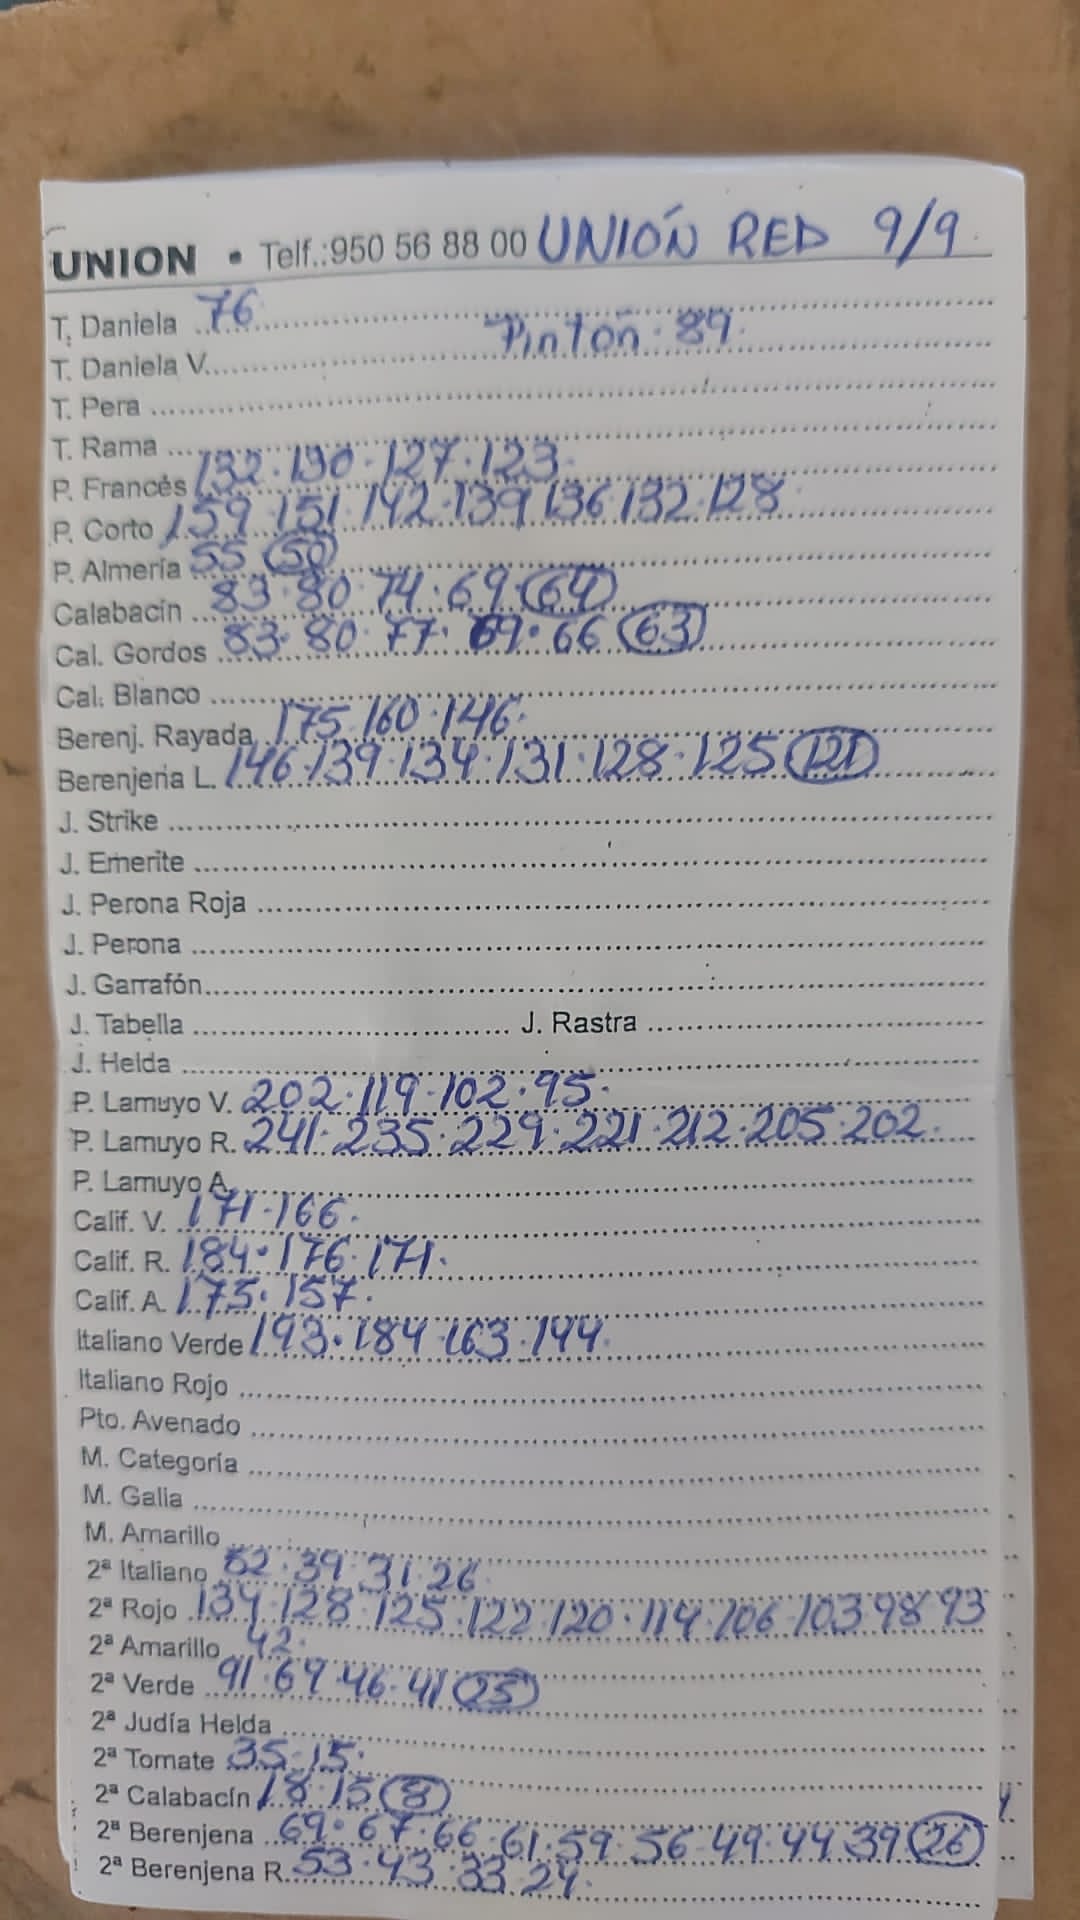 UNION • Telf.:950 56 88 00 UNIÓN RED 9/9
T. Daniela 76
Pinton 89
T. Daniela V.
T. Pera
T. Rama
P. Francés 132 · 130 · 127 · 123
P. Corto 159 · 151 · 142 · 139 136 132 · 128
P. Almería 55 (50)
Calabacín 83 · 80 74 · 69 (64)
Cal. Gordos 83 · 80 · 77 · 69 · 66 (63)
Cal. Blanco
Berenj. Rayada 175 160 · 146
Berenjena L. 146 · 139 · 134 · 131 · 128 · 125 (121)
J. Strike
J. Emerite
J. Perona Roja
J. Perona
J. Garrafón
J. Tabella J. Rastra
J. Helda
P. Lamuyo V. 202 · 119 · 102 · 95
P. Lamuyo R. 241 · 235 · 229 · 221 · 212 · 205 · 202
P. Lamuyo A.
Calif. V. 171 · 166
Calif. R. 184 · 176 · 171
Calif. A. 175 · 157
Italiano Verde 193 · 184 163 · 144
Italiano Rojo
Pto. Avenado
M. Categoría
M. Galia
M. Amarillo
2ª Italiano 39 · 31 · 26
2ª Rojo 134 · 128 125 · 122 120 · 114 · 106 · 103 98 93
2ª Amarillo 42
2ª Verde 91 · 69 46 · 41 (25)
2ª Judía Helda
2ª Tomate 35 · 15
2ª Calabacín 18 15 (8)
2ª Berenjena 69 · 67 · 66 · 61 · 59 · 56 · 49 · 44 39 (26)
2ª Berenjena R. 53 · 43 · 33 24